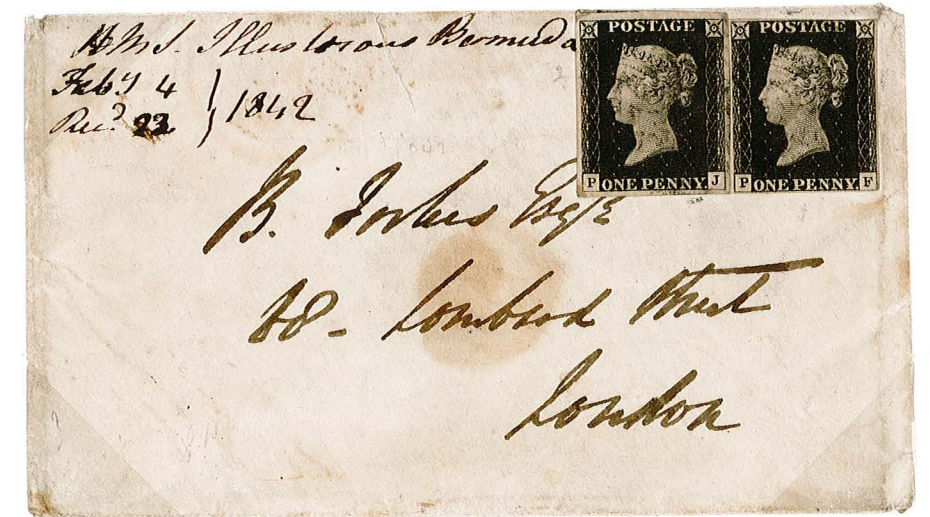 H.M.S. Illustrious Bermuda
Feby 4
Recd. 22 } 1842
POSTAGE
P ONE PENNY J
POSTAGE
P ONE PENNY F
B. Forbes Esqre
- Lombard Street
London